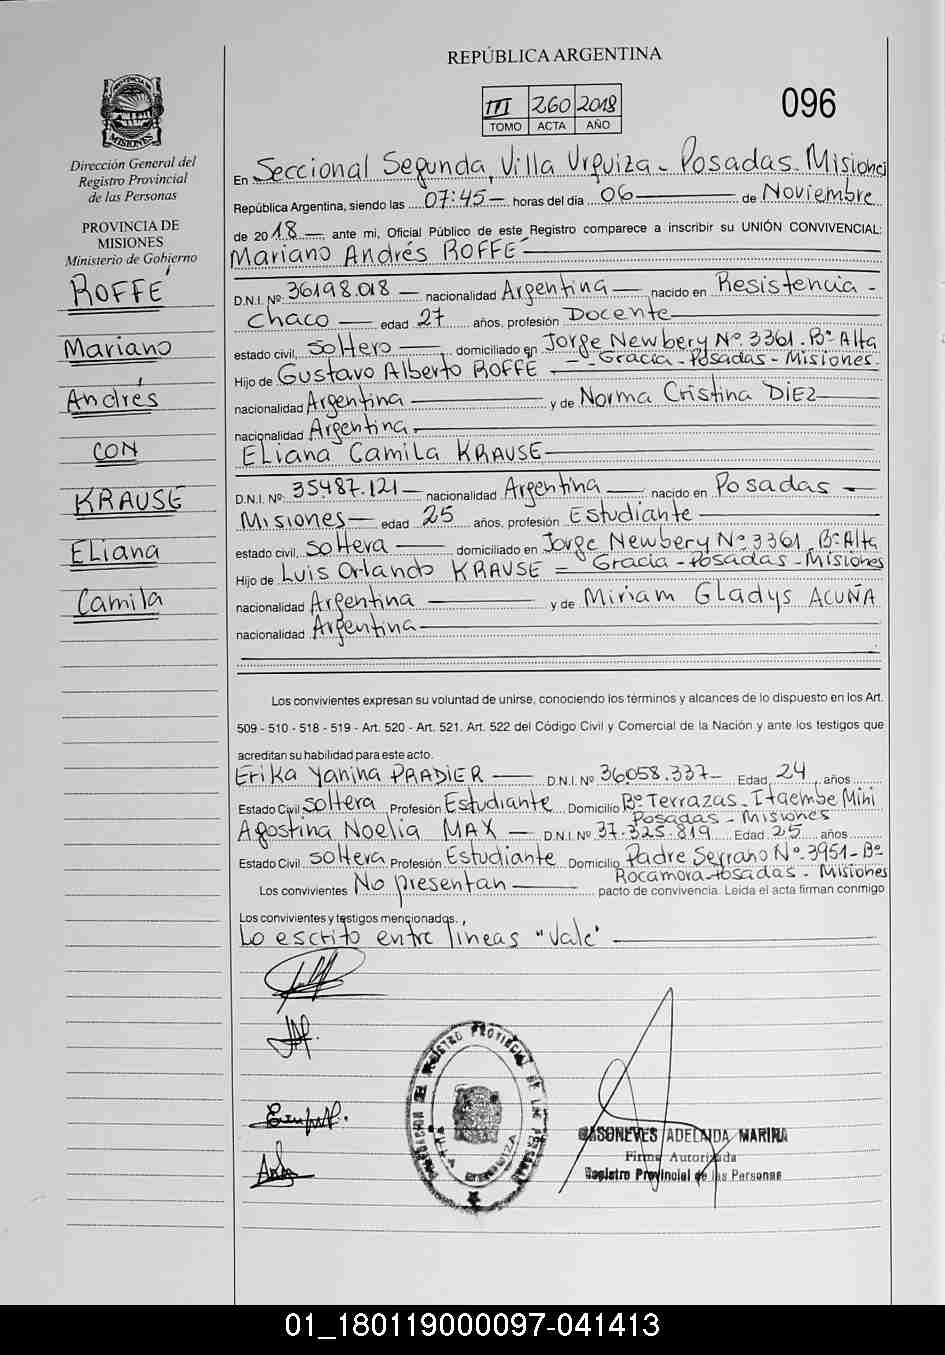 REPÚBLICA ARGENTINA
III 260 2018
TOMO ACTA AÑO
096
PROVINCIA DE
MISIONES
Dirección General del
Registro Provincial
de las Personas
PROVINCIA DE
MISIONES
Ministerio de Gobierno
ROFFÉ
Mariano
Andrés
CON
KRAUSE
ELiana
Camila
En Seccional Segunda, Villa Urquiza - Posadas - Misiones
República Argentina, siendo las 07:45 horas del día 06 de Noviembre
de 2018 ante mi, Oficial Público de este Registro comparece a inscribir su UNIÓN CONVIVENCIAL:
Mariano Andrés ROFFÉ
D.N.I. Nº: 36198.018 nacionalidad Argentina nacido en Resistencia -
Chaco edad 27 años, profesión Docente
estado civil, soltero domiciliado en Jorge Newbery Nº 3361 - Bº Alta
Gracia - Posadas - Misiones.
Hijo de Gustavo Alberto ROFFÉ
nacionalidad Argentina y de Norma Cristina DIEZ
nacionalidad Argentina.
ELiana Camila KRAUSE
D.N.I. Nº: 35487.121 nacionalidad Argentina nacido en Posadas -
Misiones edad 25 años, profesión Estudiante
estado civil, soltera domiciliado en Jorge Newbery Nº 3361, Bº Alta
Gracia - Posadas - Misiones
Hijo de Luis Orlando KRAUSE
nacionalidad Argentina y de Miriam Gladys ACUÑA
nacionalidad Argentina
Los convivientes expresan su voluntad de unirse, conociendo los términos y alcances de lo dispuesto en los Art.
509 - 510 - 518 - 519 - Art. 520 - Art. 521. Art. 522 del Código Civil y Comercial de la Nación y ante los testigos que
acreditan su habilidad para este acto.
Erika Yanina PRADIER D.N.I. Nº 36058.337 Edad 24 años
Estado Civil soltera Profesión Estudiante Domicilio Bº Terrazas - Itaembe Mini
Posadas - Misiones
Agostina Noelia MAX D.N.I. Nº 37.325.819 Edad 25 años
Estado Civil soltera Profesión Estudiante Domicilio Padre Serrano Nº 3951 - Bº
Rocamora - Posadas - Misiones
Los convivientes No presentan pacto de convivencia. Leida el acta firman conmigo
Los convivientes y testigos mencionados.
Lo escrito entre líneas "Vale"
REGISTRO PROVINCIAL DE LAS PERSONAS
VILLA URQUIZA
ADELAIDA MARINA
Firma Autorizada
Registro Provincial de las Personas
01_180119000097-041413